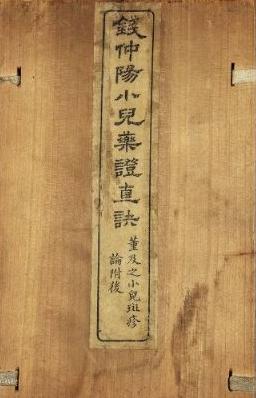 錢仲陽小兒藥證直訣
董及之小兒斑疹
論附後